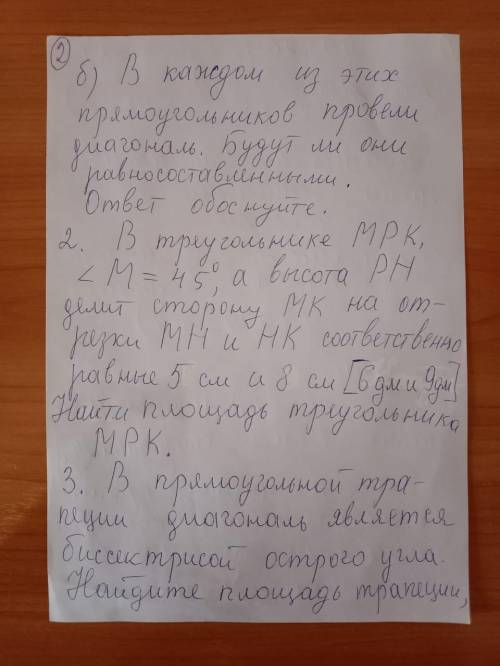 2
б) В каждом из этих
прямоугольников провели
диагональ. Будут ли они
равносоставленными.
Ответ обоснуйте.
2. В треугольнике МРК,
∠М = 45°, а высота РН
делит сторону МК на от-
резки МН и НК соответственно
равные 5 см и 8 см [6 дм и 9 дм]
Найти площадь треугольника
МРК.
3. В прямоугольной тра-
пеции диагональ является
биссектрисой острого угла.
Найдите площадь трапеции,